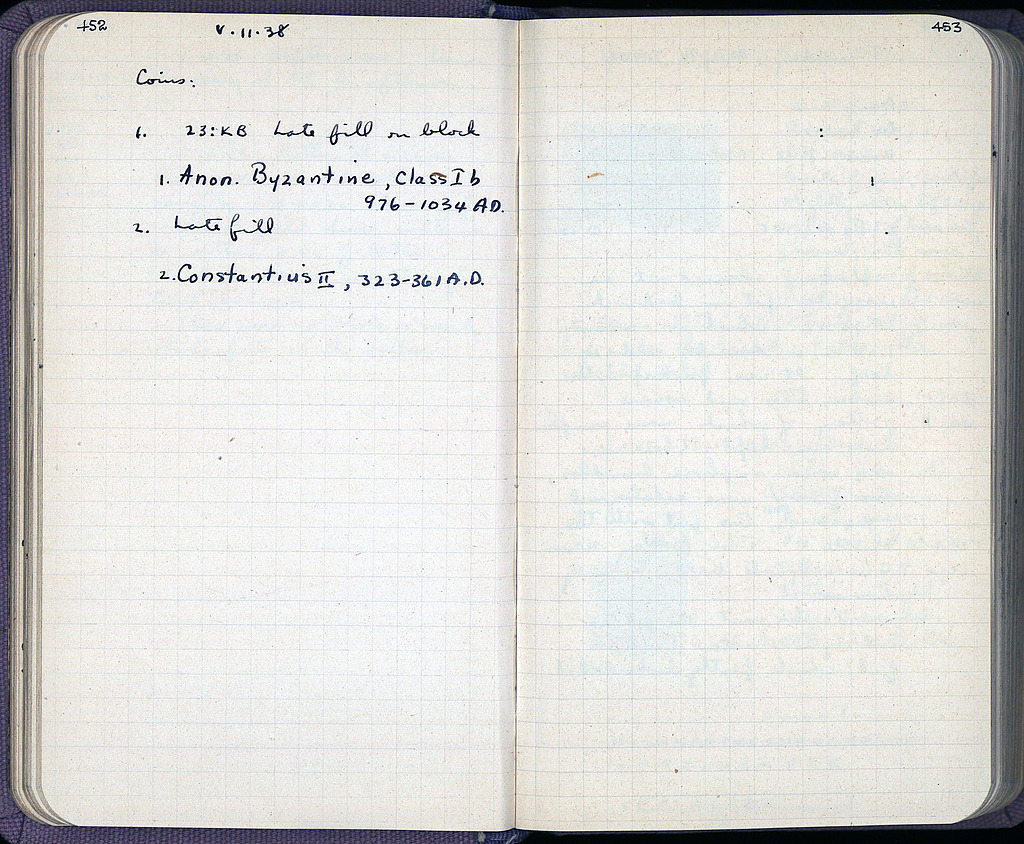 452
V.11.38
Coins:
1. 23:KB Late fill on block
1. Anon. Byzantine, Class I b
976-1034 A.D.
2. Late fill
2. Constantius II, 323-361 A.D.
453